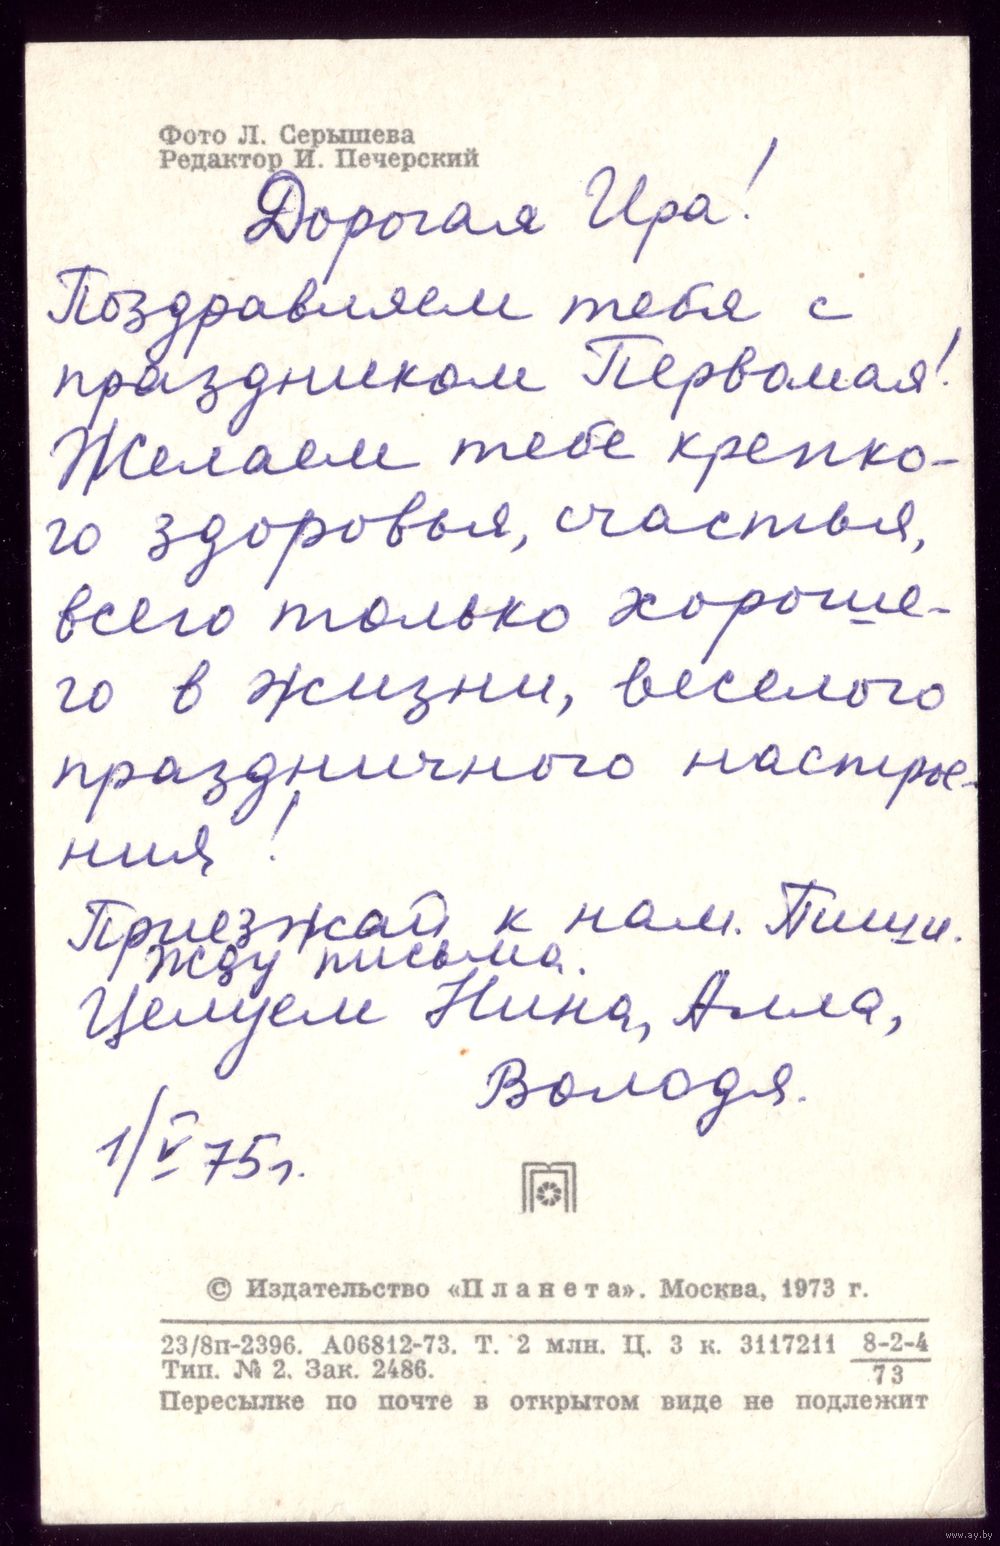 Фото Л. Серышева
Редактор И. Печерский
Дорогая Ира!
Поздравляем тебя с
праздником Первомая!
Желаем тебе крепко-
го здоровья, счастья,
всего только хороше-
го в жизни, веселого
праздничного настрое-
ния!
Приезжай к нам. Пиши.
Жду письма.
Целуем Нина, Алла,
Володя.
1/V 75г.
© Издательство «Планета». Москва, 1973 г.
23/8п-2396. А06812-73. Т. 2 млн. Ц. 3 к. 3117211 8-2-4/73
Тип. № 2. Зак. 2486.
Пересылке по почте в открытом виде не подлежит
www.ay.by